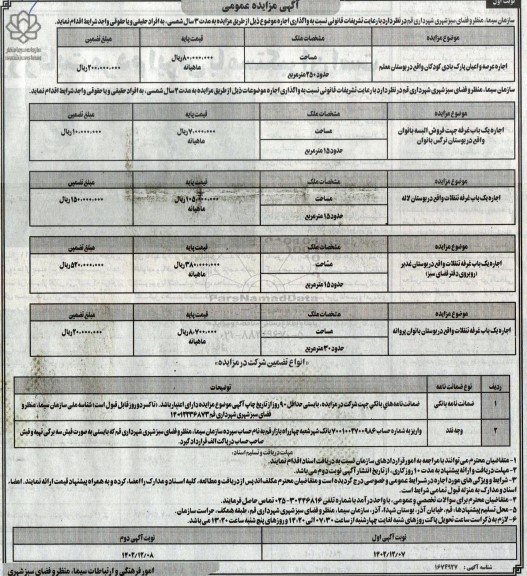 نوبت اول
آگهی مزایده عمومی
سازمان سیما، منظر و فضای سبز شهری شهرداری قم در نظر دارد با رعایت تشریفات قانونی نسبت به واگذاری اجاره موضوع ذیل از طریق مزایده به مدت ۳ سال شمسی، به افراد حقیقی و یا حقوقی واجد شرایط اقدام نماید.
موضوع مزایده مشخصات ملک قیمت پایه مبلغ تضمین
اجاره عرصه و اعیان پارک بادی کودکان واقع در بوستان معلم مساحت حدود ۲۵۰ مترمربع ۸۰،۰۰۰،۰۰۰ ریال ماهیانه ۲۰۰،۰۰۰،۰۰۰ ریال
سازمان سیما، منظر و فضای سبز شهری شهرداری قم در نظر دارد با رعایت تشریفات قانونی نسبت به واگذاری اجاره موضوعات ذیل از طریق مزایده به مدت ۲ سال شمسی، به افراد حقیقی و یا حقوقی واجد شرایط اقدام نماید.
موضوع مزایده مشخصات ملک قیمت پایه مبلغ تضمین
اجاره یک باب غرفه جهت فروش البسه بانوان واقع در بوستان نرگس بانوان مساحت حدود ۱۵ مترمربع ۷۰،۰۰۰،۰۰۰ ریال ماهیانه ۱۰۰،۰۰۰،۰۰۰ ریال
موضوع مزایده مشخصات ملک قیمت پایه مبلغ تضمین
اجاره یک باب غرفه تنقلات واقع در بوستان لاله مساحت حدود ۱۵ مترمربع ۱۰۵،۰۰۰،۰۰۰ ریال ماهیانه ۱۵۰،۰۰۰،۰۰۰ ریال
موضوع مزایده مشخصات ملک قیمت پایه مبلغ تضمین
اجاره یک باب غرفه تنقلات واقع در بوستان غدیر (روبروی دفتر فضای سبز) مساحت حدود ۱۵ مترمربع ۳۸۰،۰۰۰،۰۰۰ ریال ماهیانه ۵۲۰،۰۰۰،۰۰۰ ریال
ParsNamadData
موضوع مزایده مشخصات ملک قیمت پایه مبلغ تضمین
اجاره یک باب غرفه تنقلات واقع در بوستان بانوان پروانه مساحت حدود ۳۰ مترمربع ۸،۷۰۰،۰۰۰ ریال ماهیانه ۲۰،۰۰۰،۰۰۰ ریال
«انواع تضمین شرکت در مزایده»
ردیف نوع ضمانت نامه توضیحات
۱ ضمانت نامه بانکی ضمانت نامه‌های بانکی جهت شرکت در مزایده، بایستی حداقل ۹۰ روز از تاریخ چاپ آگهی موضوع مزایده دارای اعتبار باشد. شناسه ملی سازمان سیما، منظر و فضای سبز شهری شهرداری قم
۲ وجه نقد واریز به شماره حساب بانک شهر شعبه چهارراه بازار قم به نام حساب سپرده سازمان سیما، منظر و فضای سبز شهری شهرداری قم که بایستی به صورت فیش سه برگی تهیه و فیش صاحب حساب در پاکت الف قرار داد گیرد.
مهلت دریافت و تسلیم اسناد:
۱- متقاضیان محترم می‌توانند با مراجعه به امور قراردادهای سازمان نسبت به دریافت اسناد اقدام نمایند.
۲- مهلت دریافت و ارائه پیشنهاد به مدت ۱۰ روز کاری، از تاریخ انتشار آگهی نوبت دوم می باشد.
۳- شرایط و ویژگی های مورد اجاره در شرایط عمومی و خصوصی درج گردیده است و متقاضیان محترم مکلف اند پس از دریافت و مطالعه، کلیه اسناد و مدارک را امضاء کرده و به همراه پیشنهاد قیمت ارائه نمایند. امضاء اسناد و مدارک به منزله قبول تمامی شرایط است.
۴- متقاضیان محترم برای سوالات تخصصی و عمومی، با واحد درآمد با شماره تلفن تماس حاصل فرمایند.
۵- محل تسلیم پیشنهادها: قم، خیابان آذر، بوستان شهدا آذر، سازمان سیما، منظر و فضای سبز شهری شهرداری قم، طبقه همکف، حراست سازمان.
۶- لازم به ذکر است ساعت تحویل پاکت روزهای شنبه لغایت چهارشنبه از ساعت ۰۷:۳۰ الی ۱۴:۲۰ و روزهای پنج شنبه ساعت ۱۳:۲۰ می باشد.
نوبت آگهی اول نوبت آگهی دوم
۱۴۰۲/۱۲/۰۷ ۱۴۰۲/۱۲/۰۸
شناسه آگهی: ۱۶۷۴۹۲۷ امور فرهنگی و ارتباطات سیما، منظر و فضای سبز شهری